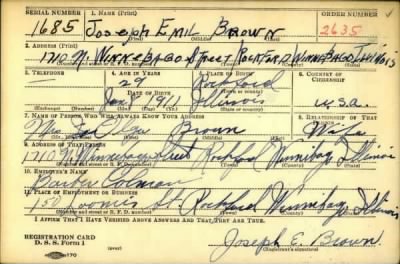 SERIAL NUMBER 1. NAME (Print) ORDER NUMBER
1685 Joseph Emil Brown 2635
(First) (Middle) (Last)
2. ADDRESS (Print)
1210 N. Winnebago Street Rockford Winnebago Illinois
(Number and street or R. F. D. number) (Town) (County) (State)
3. TELEPHONE 4. AGE IN YEARS 5. PLACE OF BIRTH 6. COUNTRY OF CITIZENSHIP
29 Rockford
DATE OF BIRTH (Town or county)
Jan 8 1911 Illinois U.S.A.
(Exchange) (Number) (Mo.) (Day) (Yr.) (State or country)
7. NAME OF PERSON WHO WILL ALWAYS KNOW YOUR ADDRESS 8. RELATIONSHIP OF THAT PERSON
Mrs Olga Brown Wife
(Mr., Mrs., Miss) (First) (Middle) (Last)
9. ADDRESS OF THAT PERSON
1210 N Winnebago Street Rockford Winnebago Illinois
(Number and street or R. F. D. number) (Town) (County) (State)
10. EMPLOYER'S NAME
Barber Colman
11. PLACE OF EMPLOYMENT OR BUSINESS
150 Loomis St. Rockford Winnebago Illinois
(Number and street or R. F. D. number) (Town) (County) (State)
I AFFIRM THAT I HAVE VERIFIED ABOVE ANSWERS AND THAT THEY ARE TRUE.
REGISTRATION CARD
D. S. S. Form 1 Joseph E. Brown
(over) (Registrant's signature)